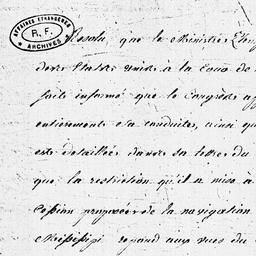 AFFAIRES ETRANGERES
R. F.
ARCHIVES
Resolu, que le Ministre Plen
des Etats unis à la Cour de
soit informé que le Congrès ap
entierement sa conduite, ainsi qu
est detaillée dans sa lettre du
que la restriction qu'il a mise à
Cession proposée de la navigation
Missisipi repond aux vues du